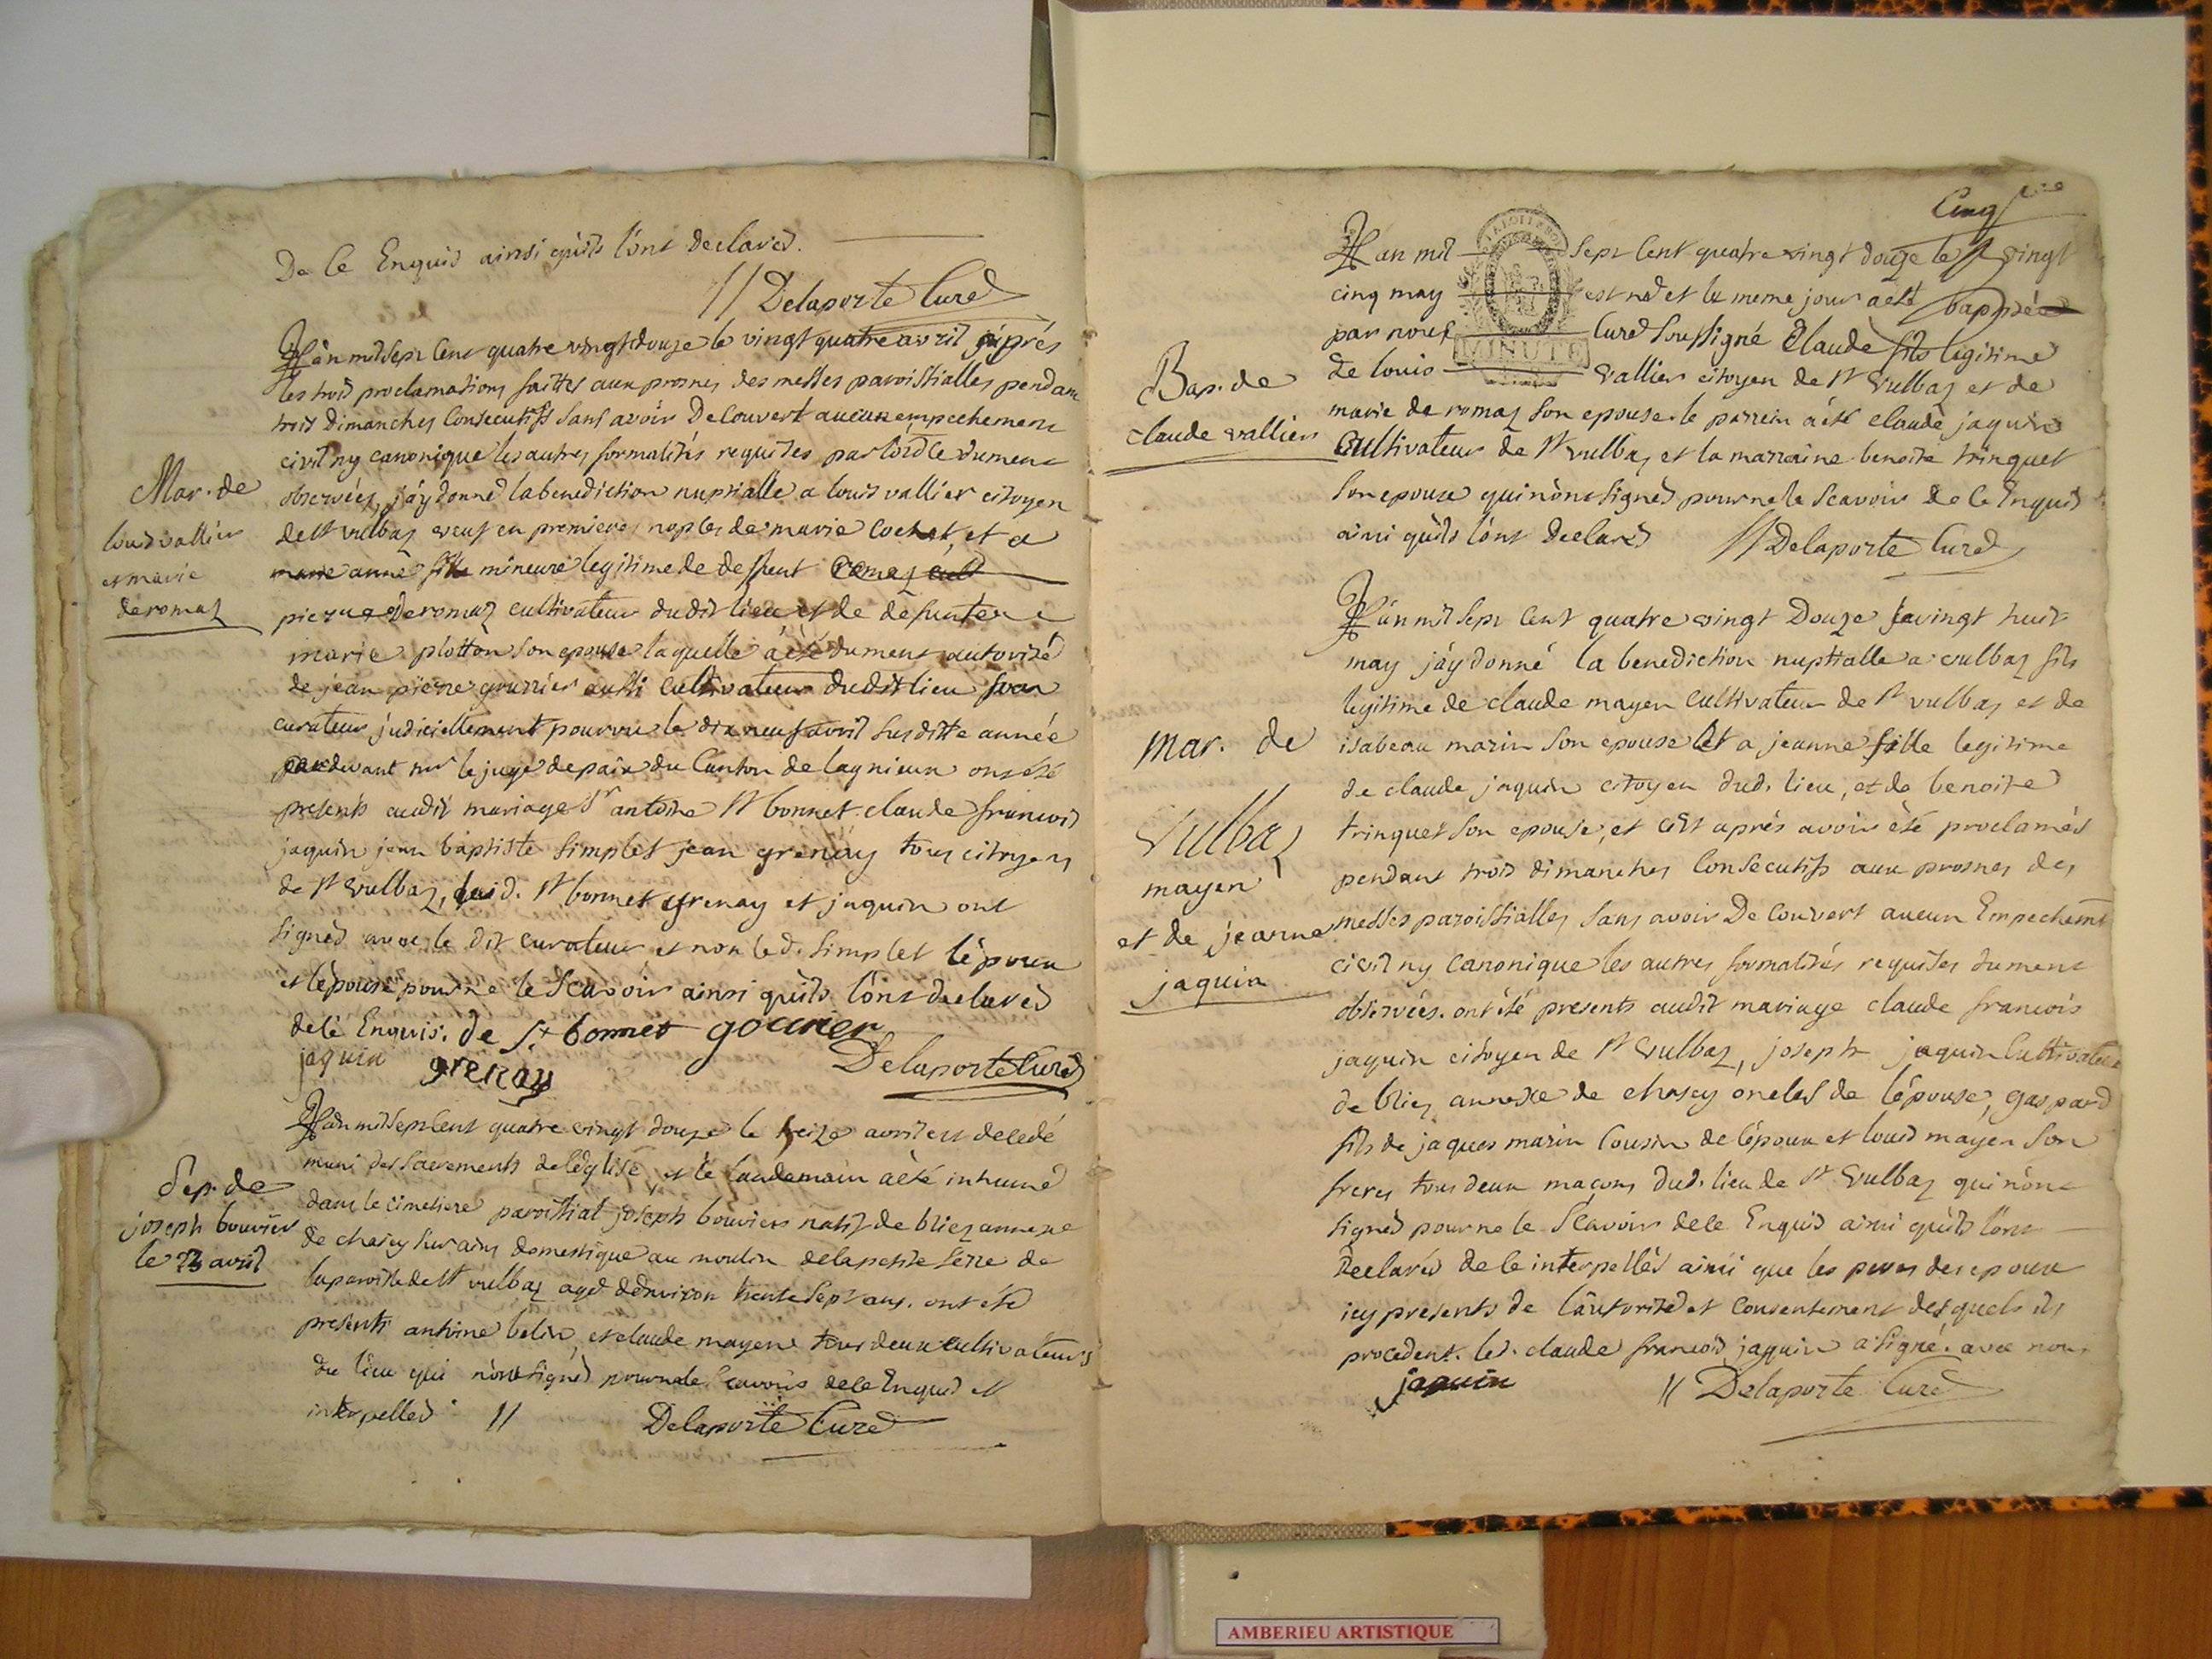 De ce Enquis ainsi quils l'ont declarés.
// Delaporte Curé
L'an mil sept cent quatre vingt douze le vingt quatre avril après
les trois proclamations faittes aux prosnes des messes paroissialles pendant
trois dimanches Consecutifs sans avoir Decouvert aucun empechement
civil ny canonique les autres formalités requises par loi dument
observées, j'ay donné la benediction nuptialle a louis vallier citoyen
de St vulbaz veuf en premieres nopces de marie cochet, et a
marie anne fille mineure legitime de deffunt
pierre Deromaz cultivateur dudit lieu, et de defunte
marie plotton son epouse laquelle a été dument autorisé
de jean pierre aussi cultivateur dudit lieu son
curateur judiciellement pourvu le dix neuf avril susditte année
pardevant mr le juge de paix du Canton de lagnieux ont été
presents audit mariage Sr antoine St bonnet claude francois
jaquin jean baptiste simplet jean grenay tous citoyens
de St vulbaz, lesd. St bonnet grenay et jaquin ont
signés avec le dit curateur et non led. simplet l'époux
et l'épouse pour ne le Scavoir ainsi quils l'ont declarés
de ce Enquis. de St bonnet gourrier
jaquin grenay Delaporte Curé
Mar. de
louis vallier
et marie
deromaz
L'an mil sept cent quatre vingt douze le treize avril est decedé
muni des sacrements de l'église, et le landemain a été inhumé
dans le cimetiere paroissial joseph bouvier natif de bliez annexe
de chasey sur ains domestique au moulin de la petite serre de
la paroisse de St vulbaz agé d'environ trente sept ans. ont été
presents antoine belin, et claude mayen tous deux cultivateurs
du lieu qui n'ont signés pour ne le scavoir de ce Enquis et
interpellés // Delaporte Curé
Sep. de
joseph bouvier
le 13 avril
Cinq
L'an mil sept cent quatre vingt douze le vingt
cinq may est né et le meme jour a été baptisé
par nous Curé soussigné Claude fils legitime
de louis vallier citoyen de St vulbaz et de
marie de romaz son epouse. le parrein a été claude jaquin
Cultivateur de St vulbaz et la marraine benoite trinquet
son epouse qui n'ont signés pour ne le Scavoir de ce Enquis
ainsi quils l'ont declarés // Delaporte Curé
MINUTE
Bap. de
claude vallier
L'an mil sept cent quatre vingt Douze le vingt huit
may j'ay donné la benediction nuptialle a vulbaz fils
legitime de claude mayen cultivateur de St vulbaz et de
isabeau marin son epouse et a jeanne fille legitime
de claude jaquin citoyen dud. lieu, et de benoite
trinquet son epouse, et c'est aprés avoir été proclamés
pendant trois dimanches Consecutifs aux prosnes des
messes paroissialles sans avoir Decouvert aucun Empechemt
civil ny canonique les autres formalités requises dument
observées. ont été presents audit mariage claude francois
jaquin citoyen de St vulbaz, joseph jaquin Cultivateur
de bliez annexe de chasey oncles de l'épouse, gaspard
fils de jaques marin Cousin de l'époux et louis mayen son
frere tous deux maçons dud. lieu de St vulbaz qui n'ont
signés pour ne le Scavoir de ce Enquis ainsi quils l'ont
Declarés de ce interpellés ainsi que les peres des epoux
icy presents de l'autorité et consentement desquels ils
procedent. led. claude francois jaquin a signé avec nous
jaquin // Delaporte Curé
mar. de
Vulbaz
mayen
et de jeanne
jaquin
AMBERIEU ARTISTIQUE